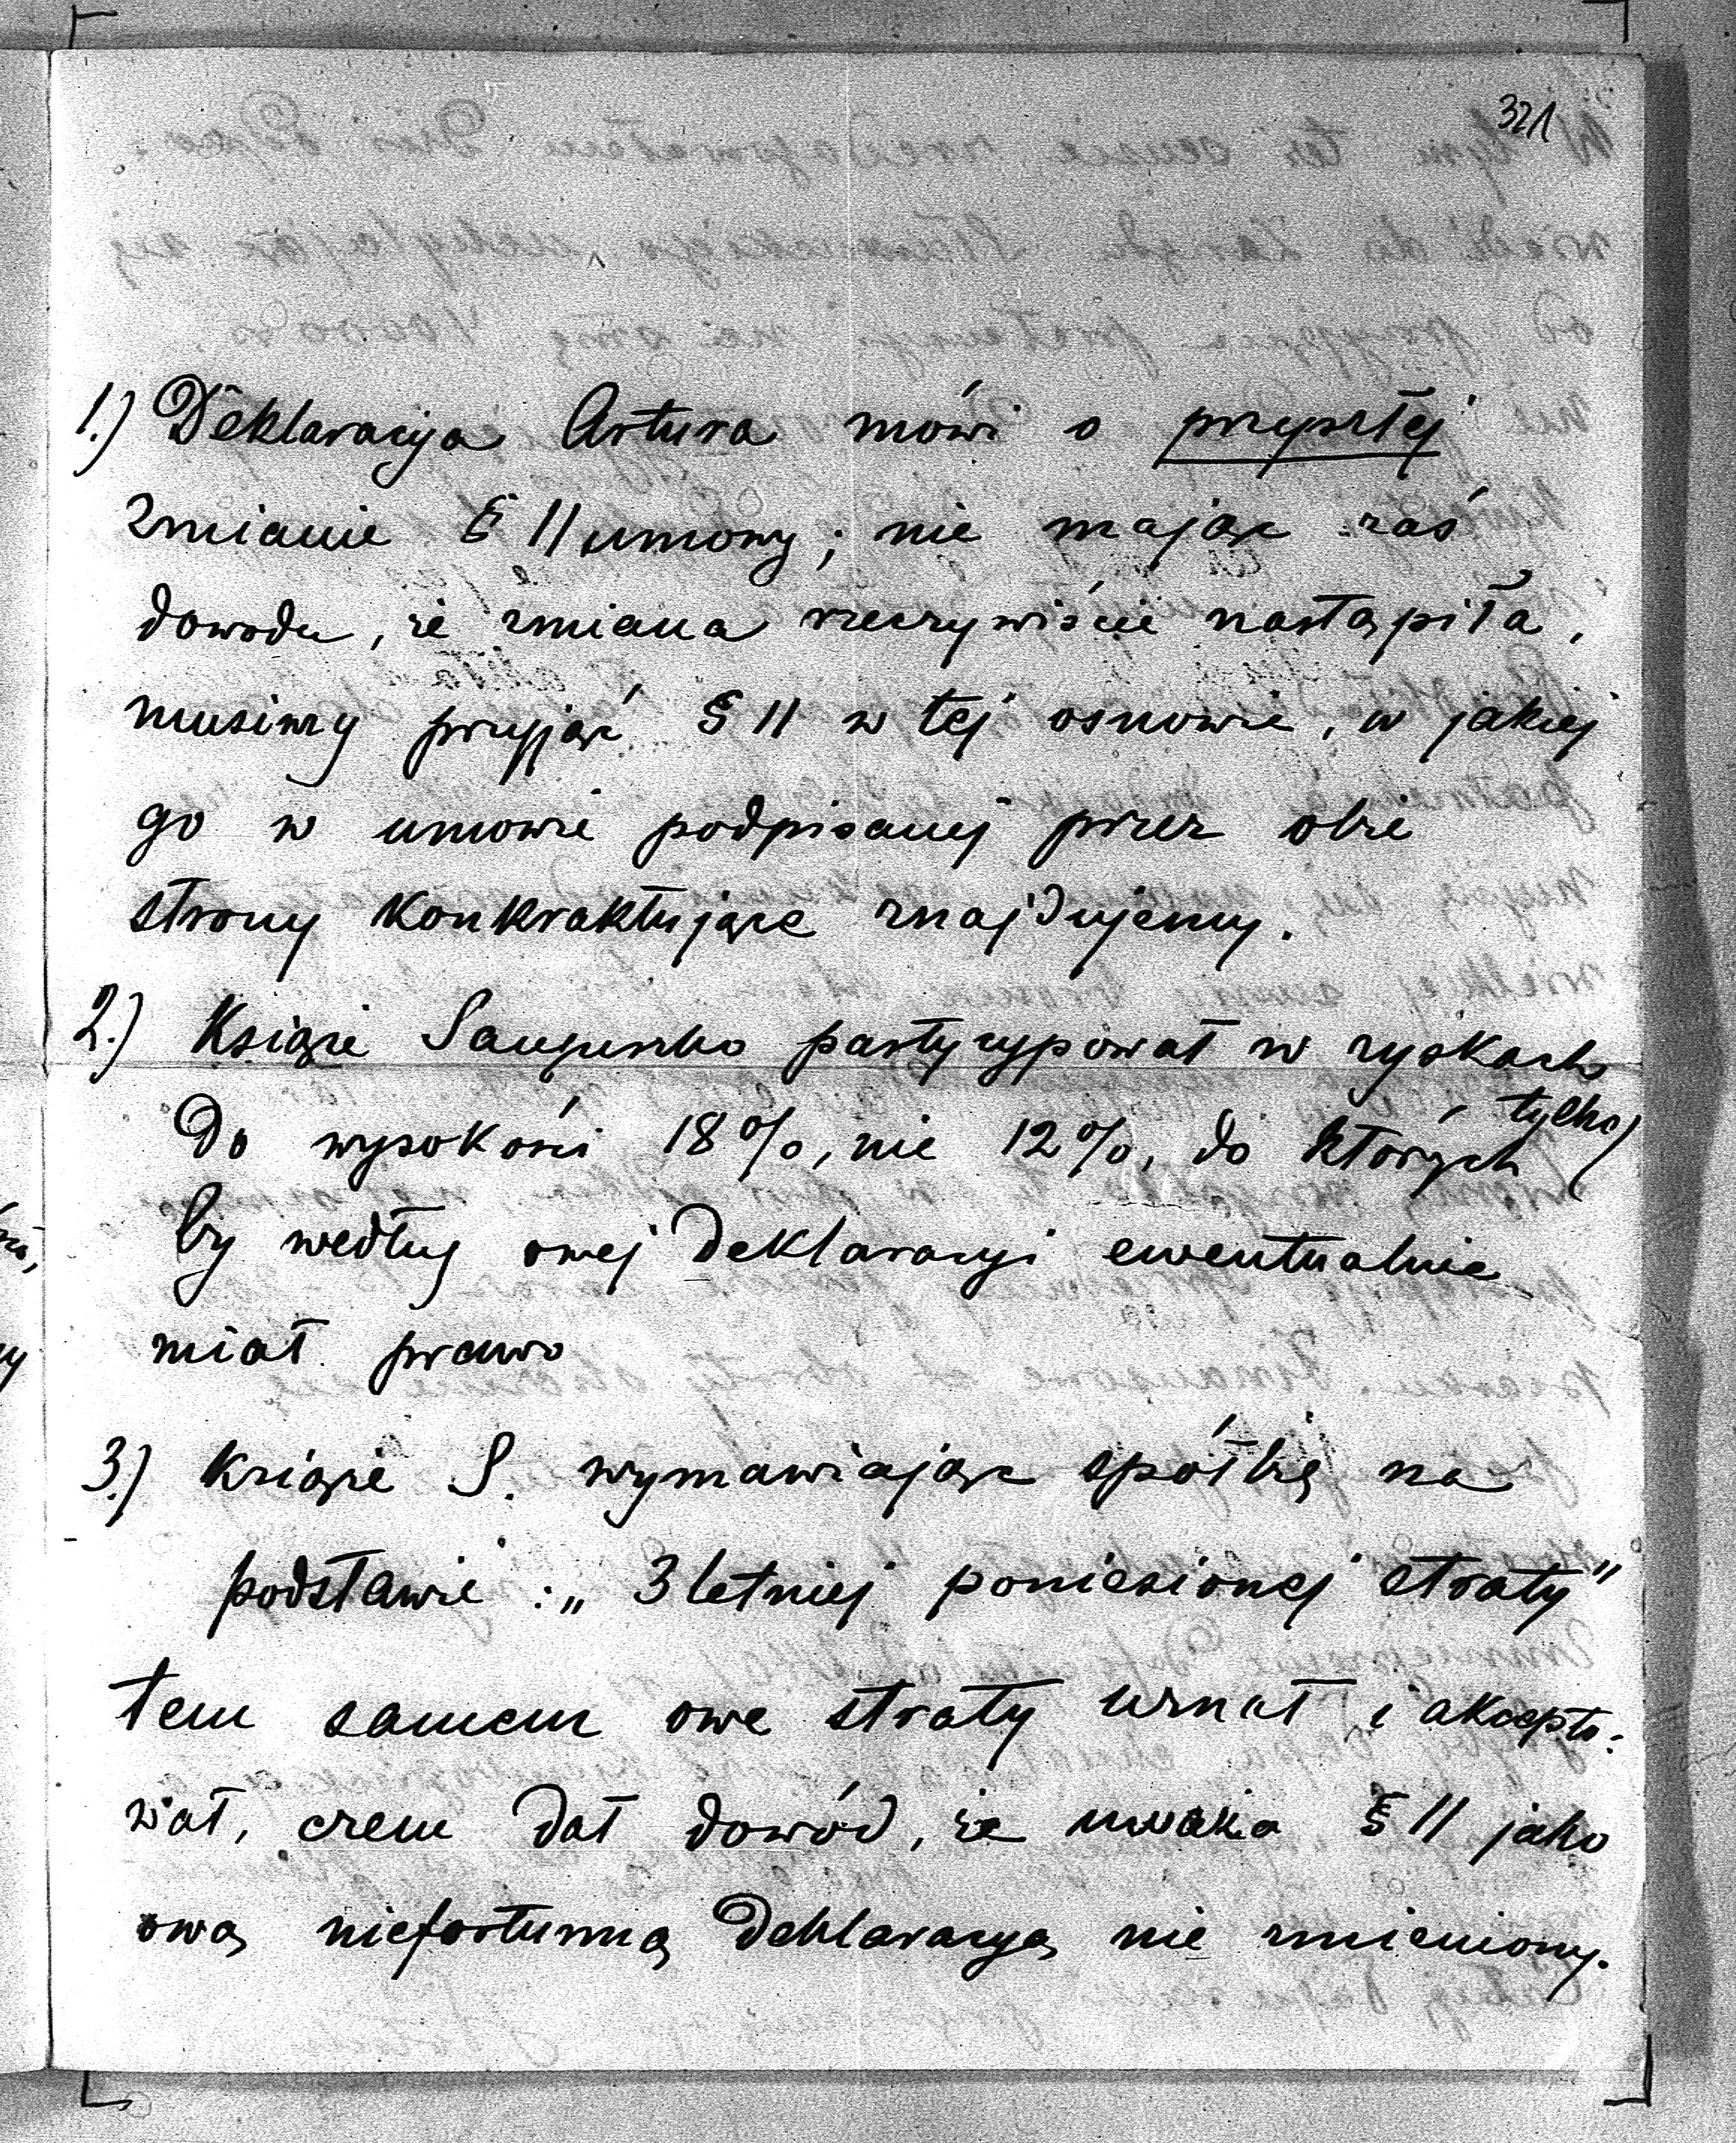 321
1.) Deklaracya Artura mówi o przyszłej
zmianie § 11 umowy; nie mając zaś
dowodu, że zmiana rzeczywiście nastąpiła,
musimy przyjąć § 11 w tej osnowie, w jakiej
go w umowie podpisanej przez obie
strony konkraktujące znajdujemy.
2.) Książe Sanguszko partycypował w zyskach
do wysokości 18%, nie 12%, do których tylko
by według owej deklaracyi ewentualnie
miał prawo
3.) Książe S. wymawiając spółkę na
podstawie : „ 3 letniej poniesionej straty"
tem samem owe straty uznał i akcepto:
wał, czem dał dowód, że uważa § 11 jako
ową niefortunną deklaracyą nie zmieniony.